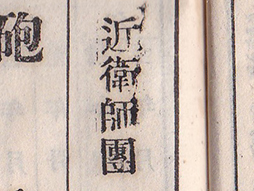 近衛師團
砲